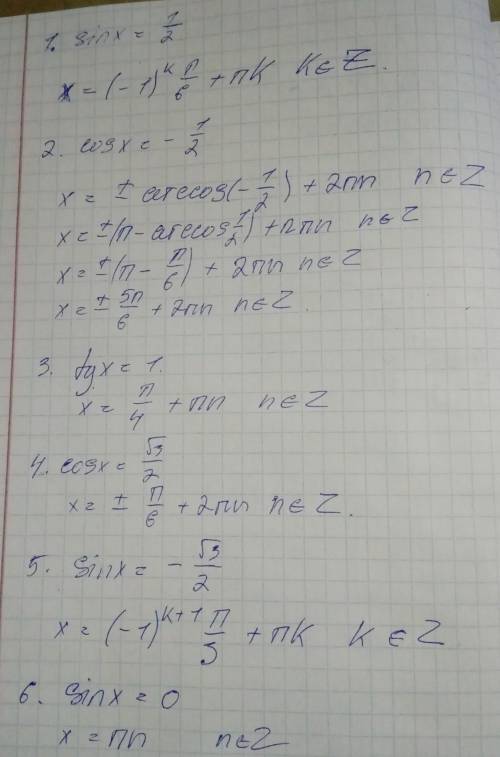 1. sinx = 1/2
x = (-1)^k π/6 + πk k∈Z.
2. cosx = - 1/2
x = ± arccos(-1/2) + 2πn n∈Z
x = ±(π - arccos 1/2) + 2πn n∈Z
x = ±(π - π/6) + 2πn n∈Z
x = ± 5π/6 + 2πn n∈Z.
3. tgx = 1.
x = π/4 + πn n∈Z
4. cosx = √3/2
x = ± π/6 + 2πn n∈Z.
5. sinx = - √3/2
x = (-1)^k+1 π/3 + πk k∈Z
6. sinx = 0
x = πn n∈Z